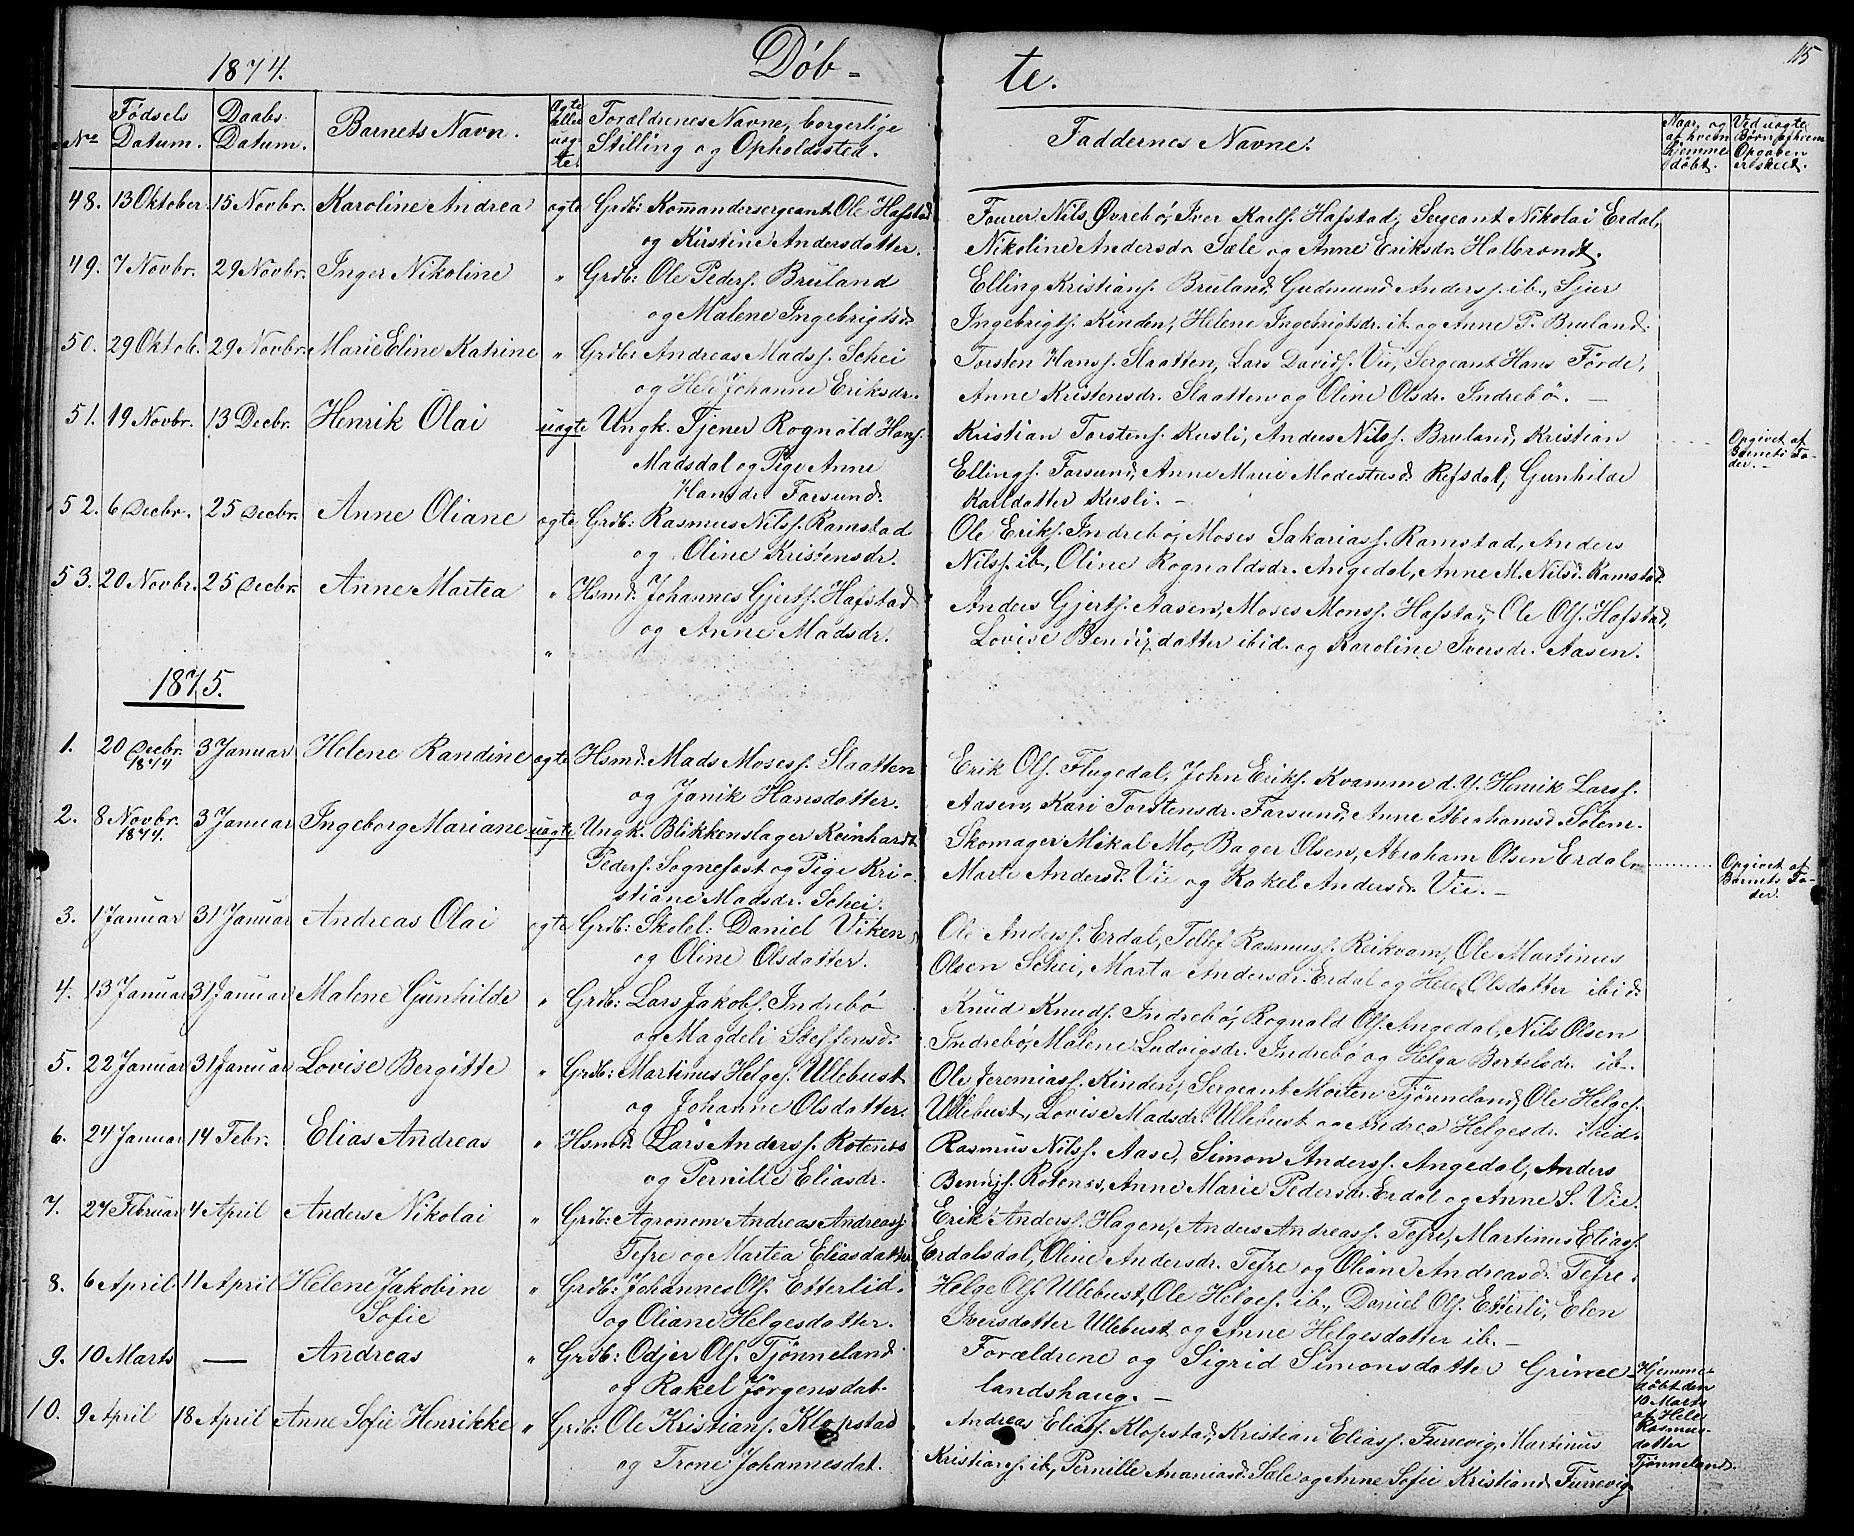 1874.
Døb-
te.
115
No
Fødsels Datum.
Daabs- Datum.
Barnets Navn.
Ægte eller uæg- te.
Forældrenes Navne, borgerlige Stilling og Opholdssted.
Faddernes Navne.
Naar og af hvem hjemme døbt.
Ved uægte Børn, af hvem Opgaven er skeet.
48. 13 Oktober 15 Novbr. Karoline Andrea ægte Grdb: Kommandersergeant Ole Hafstad
og Kirstine Andersdatter.
Fourer Nils Øvrebø, Iver Karls. Hafstad, Sergeant Nikolai Erdal,
Nikoline Andersdr. Sæle og Anne Eriksdr. Halbrendt.
49. 7 Novbr. 29 Novbr. Inger Nikoline " Grdb: Ole Peders. Bruland
og Malene Ingebrigtsd.
Elling Kristians. Bruland, Gudmund Anderss. ib., Sjur
Ingebrigts. Kinden, Helene Ingebrigtsdr. ib. og Anne P. Bruland.
50. 29 Oktob. 29 Novbr. Marie Eline Katrine " Grdb: Andreas Madss. Schei
og Hele Johanne Eriksdr.
Torsten Hanss. Slaatten, Lars Davids. Vie, Sergeant Hans Førde,
Anne Kristensdr. Slaatten og Oline Olsdr. Indrebø. —
51. 19 Novbr. 13 Decbr. Henrik Olai uægte Ungk. Tjener Rognald Hans.
Madsdal og Pige Anne
Hansdr. Farsund.
Kristian Torstens. Kusli, Anders Nilss. Bruland, Kristian
Ellings. Farsund, Anne Marie Modestusd. Refsdal, Gunhilde
Karldatter Kusli. —
Opgivet af Barnets Fa- der. —
52. 6 Decbr. 25 Decbr. Anne Oliane ægte Grdb: Rasmus Nilss. Ramstad
og Oline Kristensdr.
Ole Eriks. Indrebø, Moses Sakariass. Ramstad, Anders
Nilss. ib., Oline Rognaldsdr. Angedal, Anne M. Nilsd. Ramstad.
53. 20 Novbr. 25 Decbr. Anne Martea " Hsmd. Johannes Gjerts. Hafstad
og Anne Madsdr.
"
Anders Gjerts. Aasen, Moses Monss. Hafstad, Ole Ols. Hafstad,
Lovise Bendixdatter ibid. og Karoline Iversdr. Aasen.
1875.
1. 20 Decbr. 1874 3 Januar Helene Randine ægte Hsmd. Mads Moses. Slaatten
og Janik Hansdatter.
Erik Ols. Flugedal, John Eriks. Kvamme d.y. Henrik Larss.
Aasen, Kari Torstensdr. Farsund, Anne Abrahamsd. Solem.
2. 8 Novbr. 1874. 3 Januar Ingeborg Mariane uægte Ungk. Blikkenslager Reinhardt
Peders. Sognefest og Pige Kri-
stiane Madsdr. Schei.
Skomager Mikal Mo, Bager Olsen, Abraham Olsen Erdal,
Marte Andersd. Vie og Rakel Andersd. Vie. —
Opgivet af Barnets Fa- der.
3. 1 Januar 31 Januar Andreas Olai ægte Grdb: Skolel: Daniel Viken
og Oline Olsdatter.
Ole Anderss. Erdal, Tollef Rasmuss. Reikvam, Ole Martinus
Olsen Schei, Marta Andersdr. Erdal og Hele Olsdatter ibid.
4. 13 Januar 31 Januar Malene Gunhilde " Grdb: Lars Jakobs. Indrebø
og Magdeli Steffensd.
Knud Knuds. Indrebø, Rognald Ols. Angedal, Nils Olsen
Indrebø, Malene Ludvigsdr. Indrebø og Helga Bertelsdr. ib.
5. 22 Januar 31 Januar Lovise Bergitte " Grdb: Martinus Helges. Ullebust
og Johanne Olsdatter.
Ole Jeremiass. Kinden, Sergeant Morten Tjønneland, Ole Helges.
Ullebust, Lovise Madsdr. Ullebust og Andrea Helgesdr. ibid.
6. 24 Januar 14 Febr. Elias Andreas " Hsmd. Lars Anderss. Rotenes
og Pernille Eliasdr.
Rasmus Nilss. Aase, Simon Anderss. Angedal, Anders
Bendixs. Rotenes, Anne Marie Pedersdr. Erdal og Anne S. Vie.
7. 27 Februar 4 April Anders Nikolai " Grdb: Agronom Andreas Andreass.
Tefre og Martea Eliasdatter
Erik Anderss. Hagen, Anders Andreass. Tefre, Martinus Eliass.
Erdalsdal, Oline Andersdr. Tefre og Oliane Andreasd. Tefre.
8. 6 April 11 April Helene Jakobine
Sofie
" Grdb: Johannes Ols. Etterlid.
og Oliane Helgesdatter.
Helge Ols. Ullebust, Ole Helges. ib., Daniel Ols. Etterli, Elen
Iversdatter Ullebust og Anne Helgesdatter ib. —
9. 10 Marts — Andreas " Grdb: Odjer Ols. Tjønneland
og Rakel Jørgensdat.
Forældrene og Sigrid Simonsdatter Grime-
landshaug. —
Hjemme- døbt den 10 Marts af Hele Rasmus- datter Tjønneland.
10. 9 April 18 April Anne Sofie Henrikke " Grdb: Ole Kristians. Klopstad
og Trone Johannesdat.
Andreas Eliass. Klopstad, Kristian Eliass. Furevig, Martinus
Kristians. ib., Pernille Ananiasd. Sæle og Anne Sofie Kristiand. Furevig.